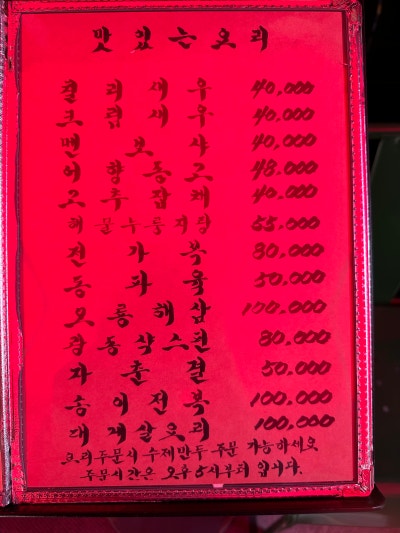 맛있는요리
칠리새우 40,000
크림새우 40,000
멘보샤 40,000
어향동고 48.000
고추잡채 40.000
해물누룽지탕 55.000
전가복 80.000
동파육 50.000
오룡해삼 100.000
깐동삭스핀 80.000
자춘결 50.000
송이전복 100.000
대게살요리 100,000
요리주문시 수제만두 주문 가능하세요
주문시간은 오후5시부터 입니다.